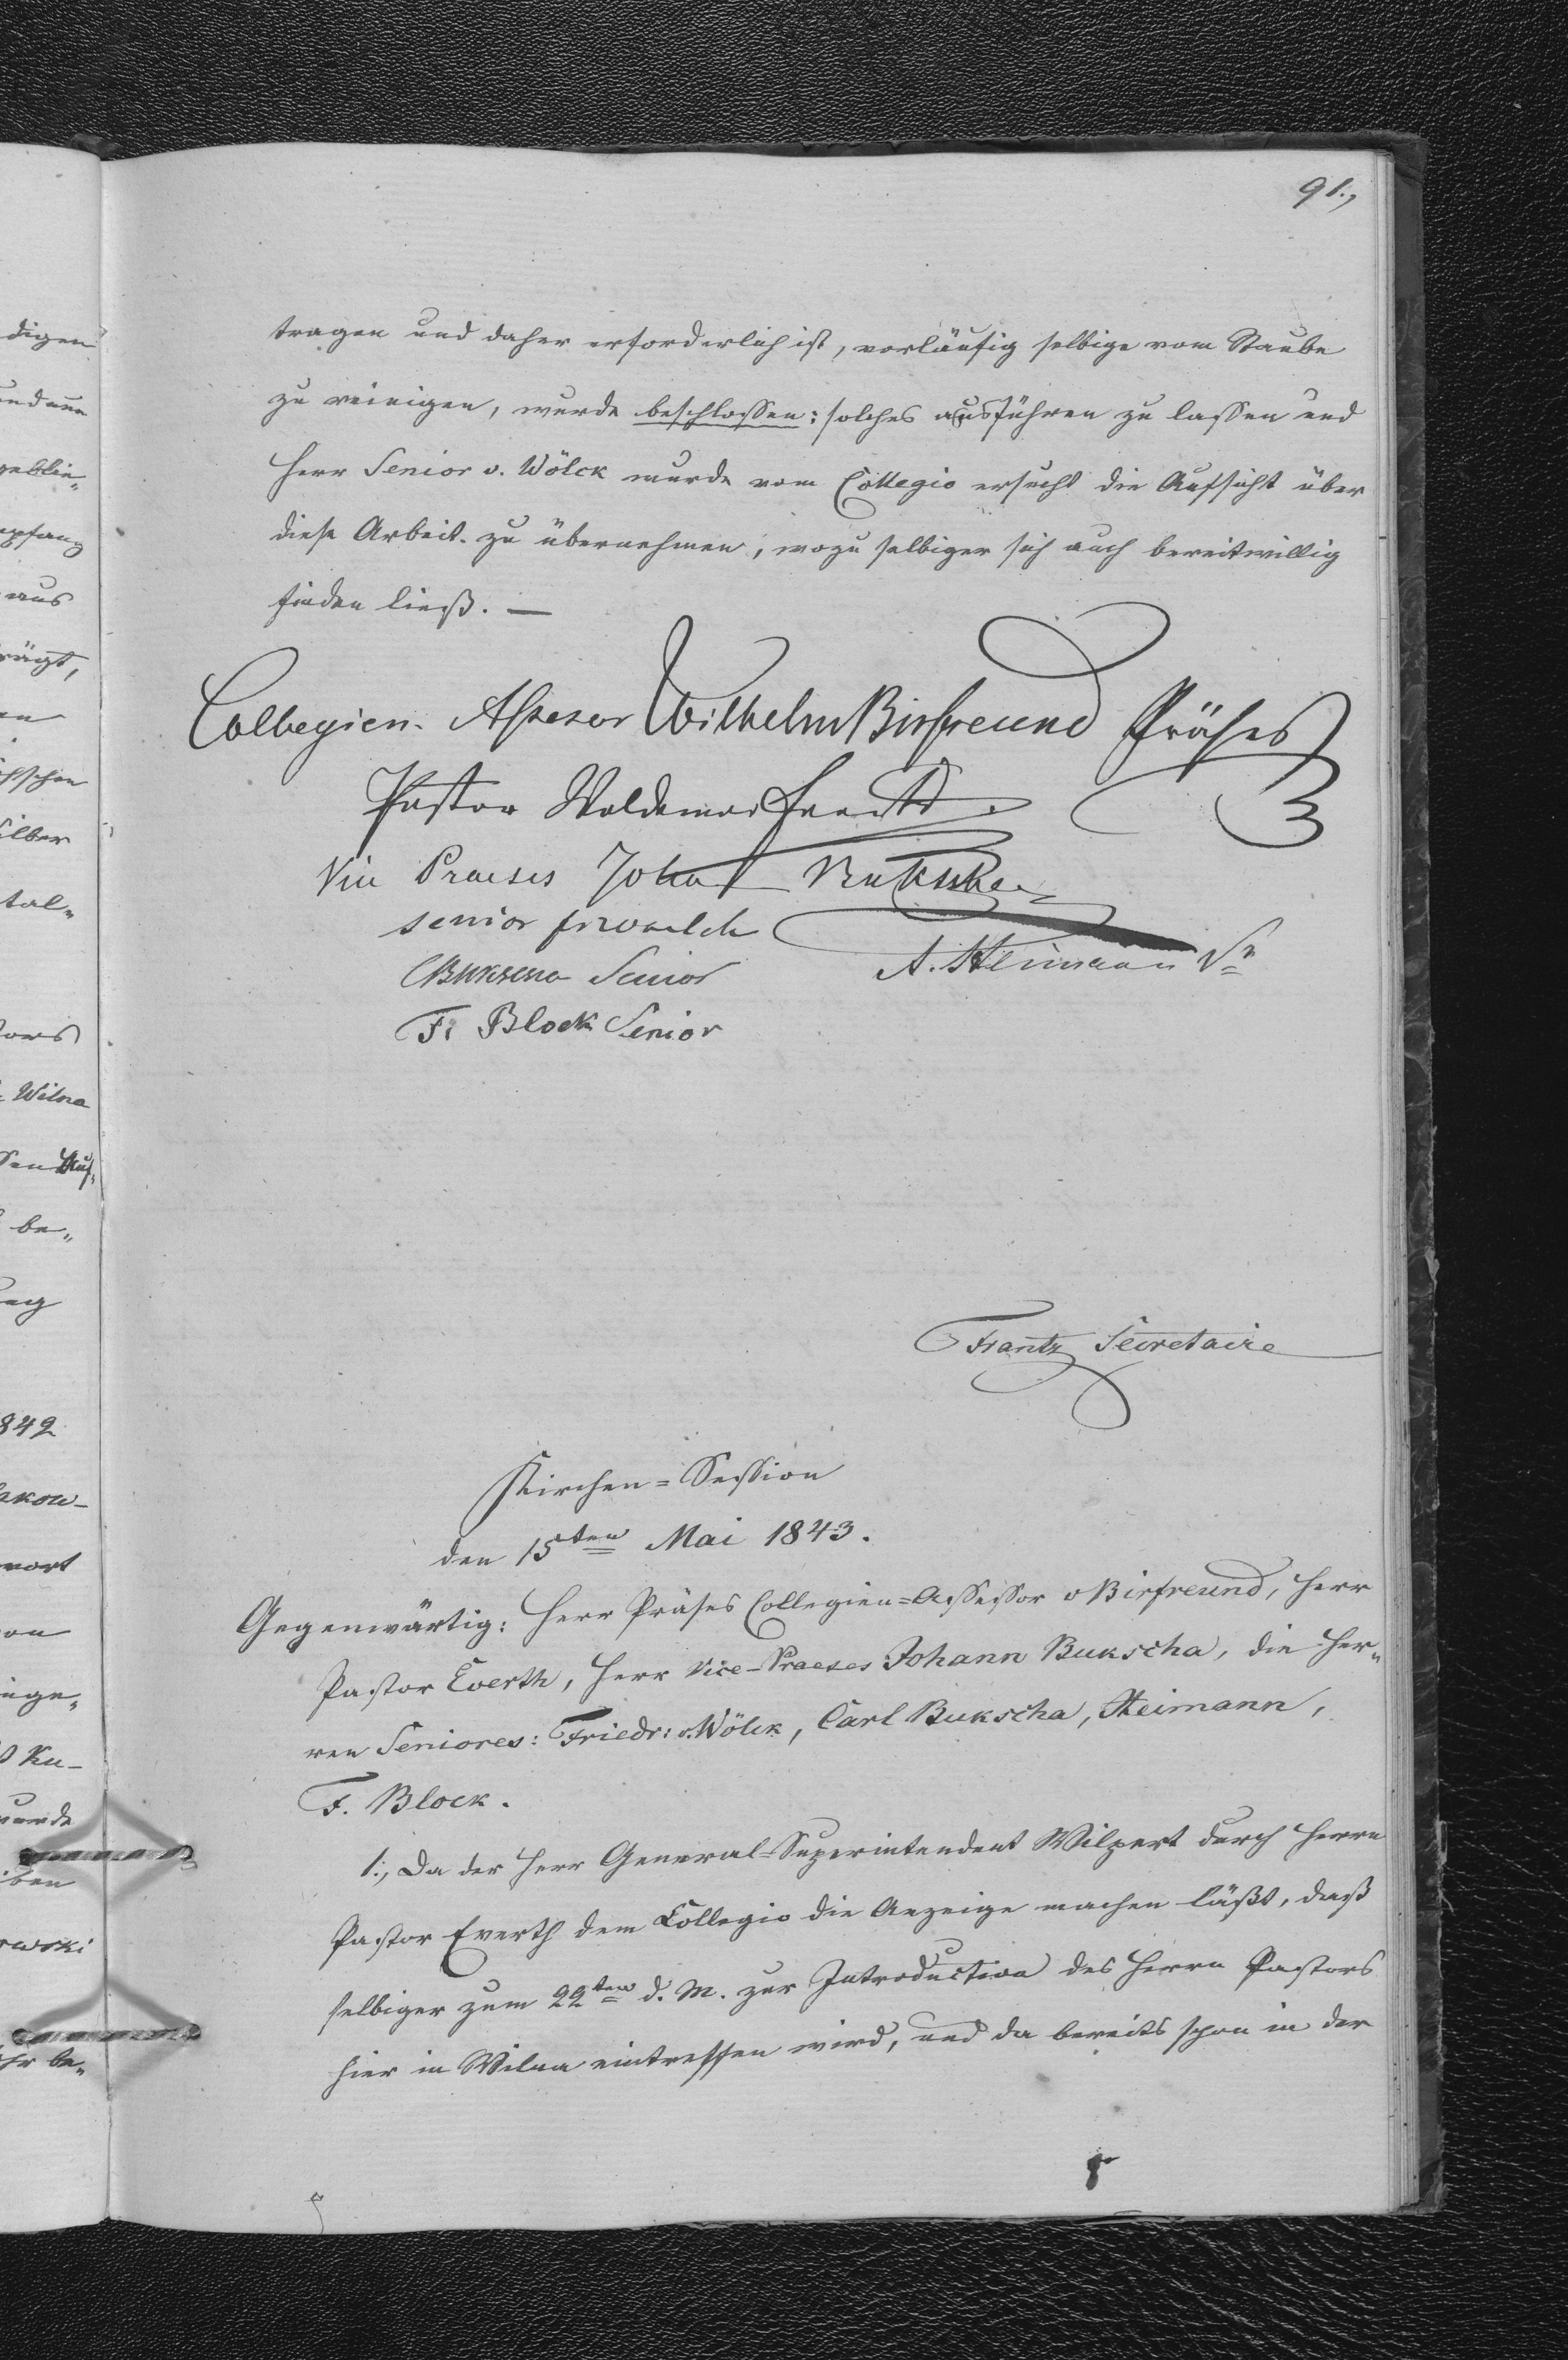 91.,
tragen und daher erforderlich ist, vorläufig selbige vom Staube
zu reinigen, wurde beschlossen: solches ausführen zu lassen und
Herr Senior v. Wölck wurde vom Collegio ersucht die Aufsicht über
diese Arbeit zu übernehmen, wozu selbiger sich auch bereitwillig
finden ließ. —
Collegien-Assessor Wilhelm Birfreund Präses
Pastor Woldemar
Praeses Johan Bukscha
senior
CBukscha Senior
A. Steimann Sr
F. Block Senior
Frantz Secretaire
Kirchen=Session
den 15ten Mai 1843.
Gegenwärtig: Herr Präses Collegien=Assessor v Birfreund, Herr
Pastor Everth, Herr Vice-Praeses Johann Bukscha, die Her„
ren Seniores: Friedr: v. Wölck, Carl Bukscha, Steimann,
F. Block.
1., Da der Herr General=Superintendent Wilpert durch Herrn
Pastor Everth dem Collegio die Anzeige machen läßt, daß
selbiger zum 22ten d. M. zur Introduction des Herrn Pastors
hier in Wilna eintreffen wird, und da bereits schon in der
digen
geblie„
aus
Silber
tal„
Wilna
be„
842
akow-
Ku-
wurde
ben
owski
be„